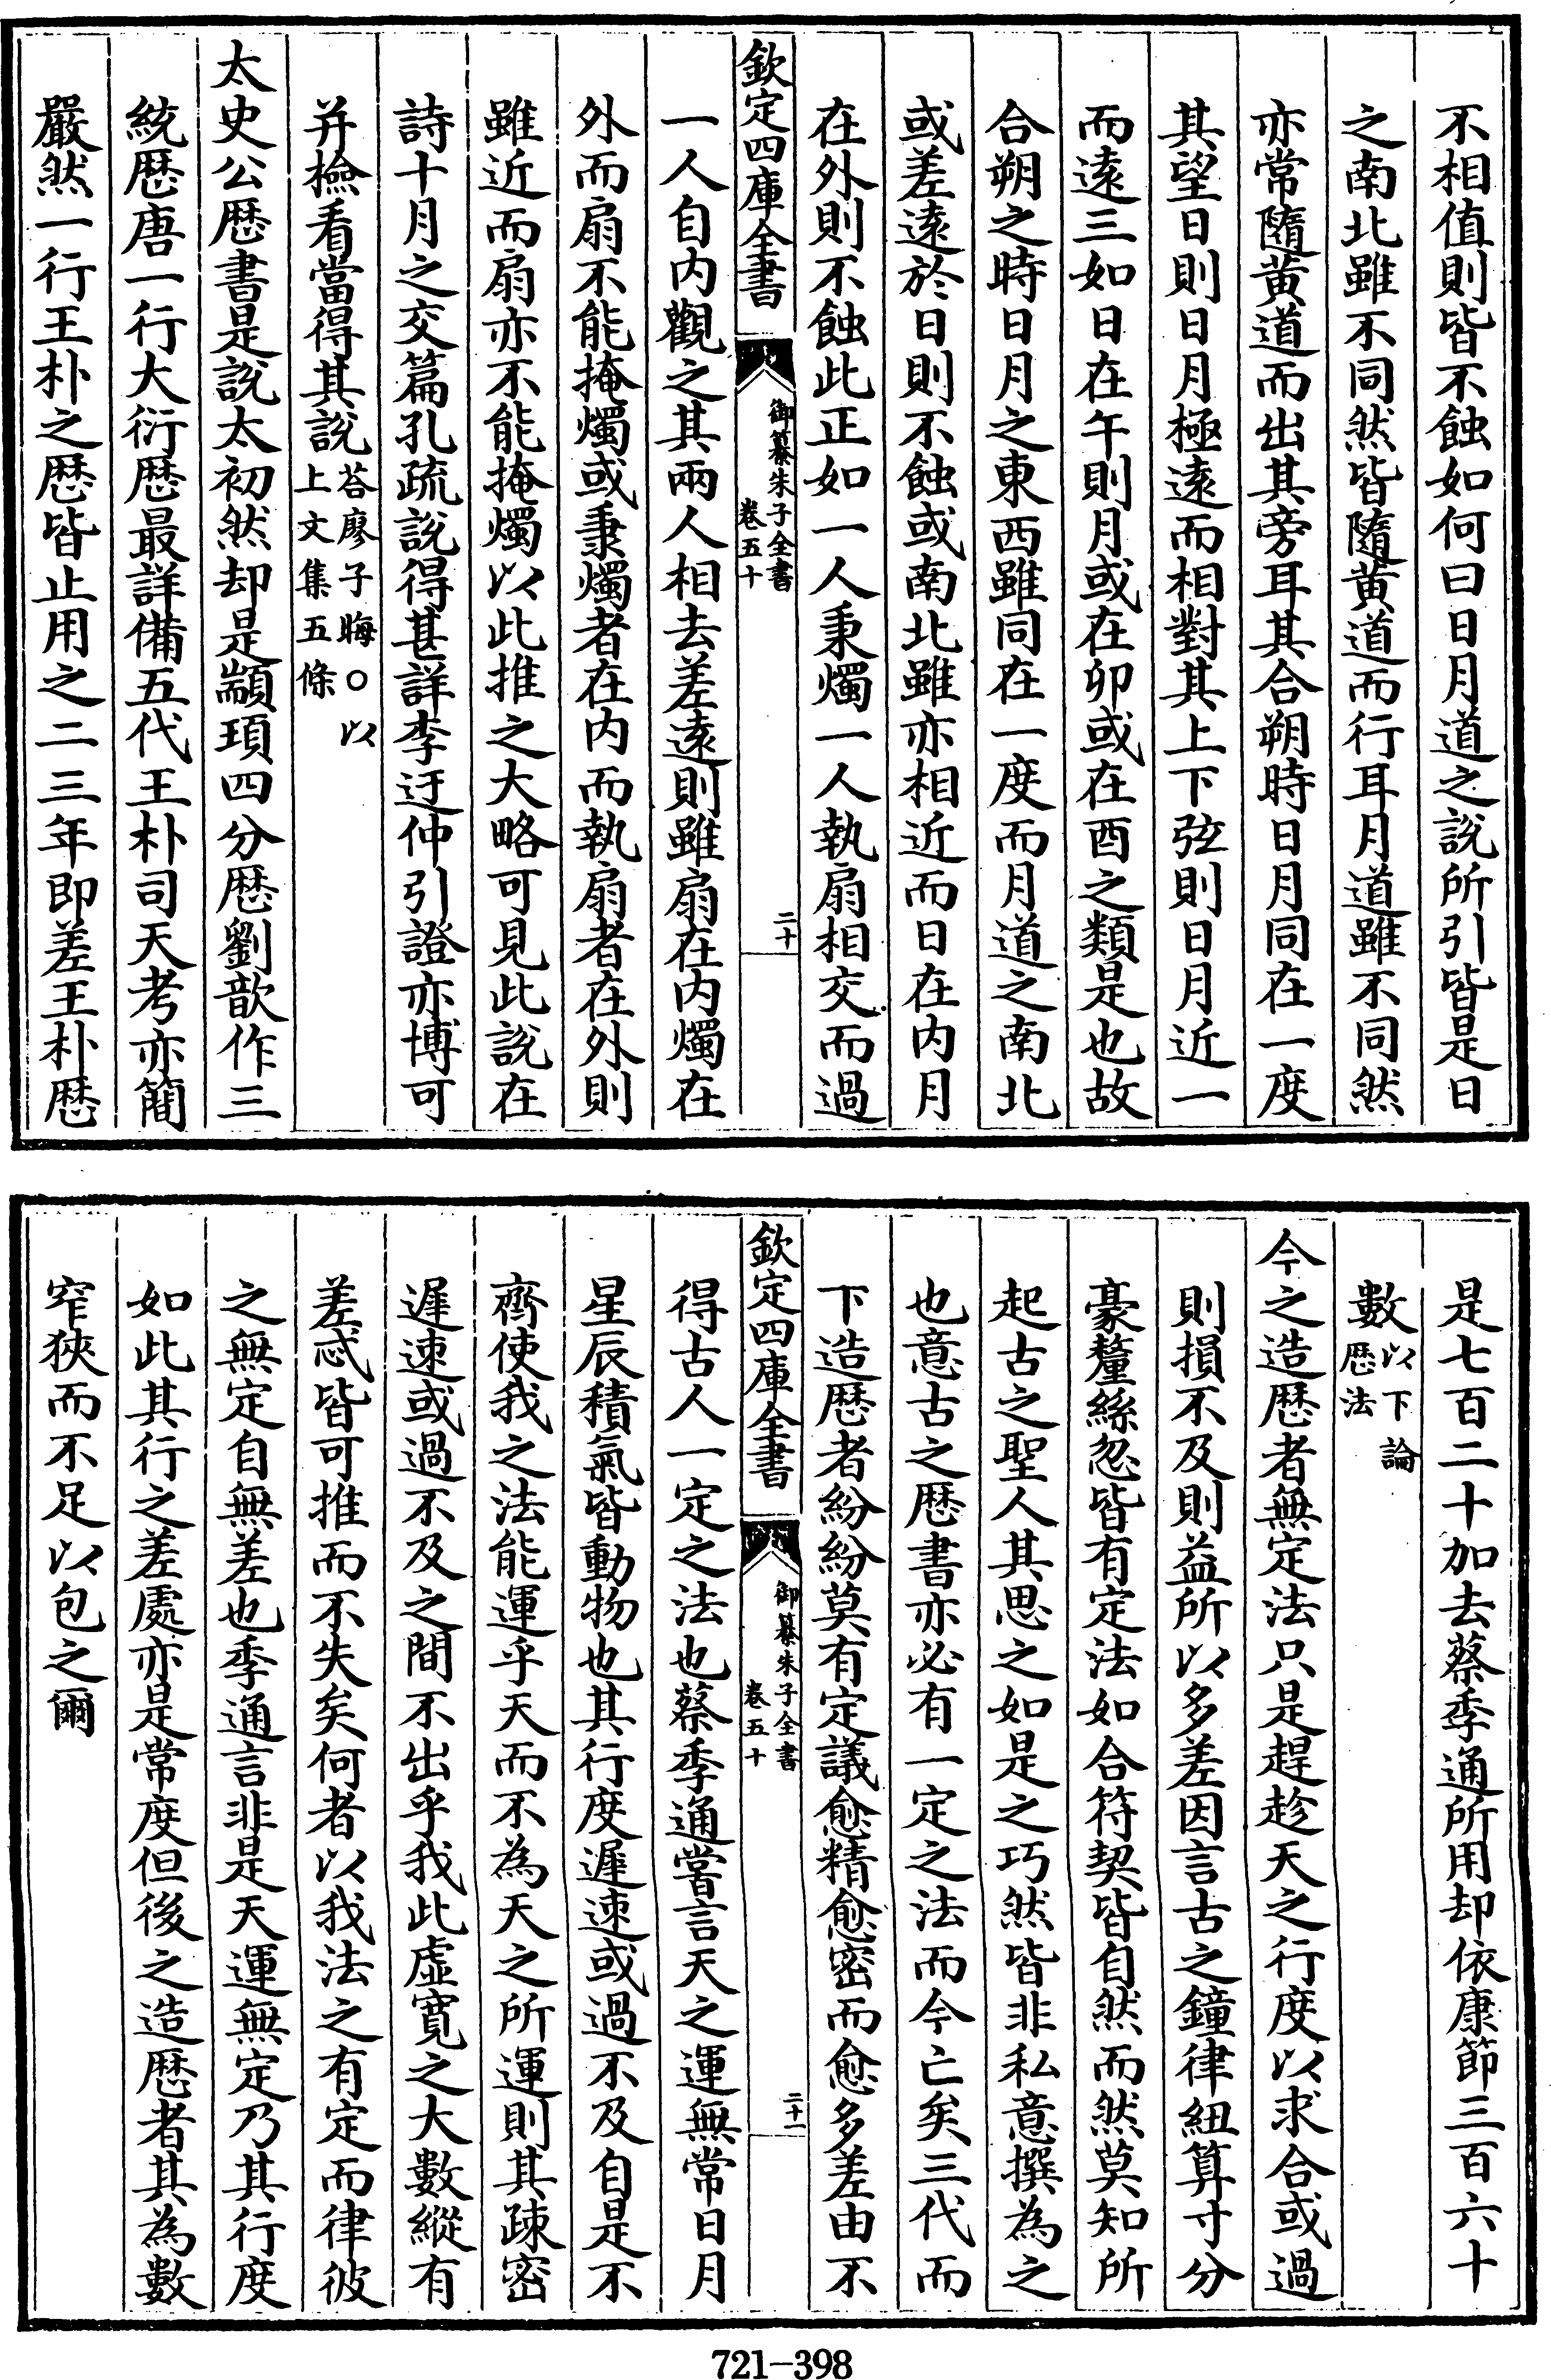 不相值則皆不蝕如何曰日月道之說所引皆是日
之南北雖不同然皆隨黄道而行耳月道雖不同然
亦常隨黄道而出其旁耳其合朔時日月同在一度
其望日則日月極遠而相對其上下弦則日月近一
而遠三如日在午則月或在卯或在酉之類是也故
合朔之時日月之東西雖同在一度而月道之南北
或差遠於日則不蝕或南北雖亦相近而日在内月
在外則不蝕此正如一人秉燭一人執扇相交而過
欽定四庫全書
御纂朱子全書
卷五十
二十
一人自内觀之其兩人相去差遠則雖扇在内燭在
外而扇不能掩燭或秉燭者在内而執扇者在外則
雖近而扇亦不能掩燭以此推之大略可見此說在
詩十月之交篇孔疏說得甚詳李迂仲引證亦博可
并檢看當得其說答廖子晦○以
上文集五條
太史公厯書是說太初然却是顓頊四分厯劉歆作三
統厯唐一行大衍厯最詳備五代王朴司天考亦簡
嚴然一行王朴之厯皆止用之二三年即差王朴厯
是七百二十加去蔡季通所用却依康節三百六十
數以下論
厯法
今之造厯者無定法只是趕趁天之行度以求合或過
則損不及則益所以多差因言古之鐘律紐算寸分
豪釐絲忽皆有定法如合符契皆自然而然莫知所
起古之聖人其思之如是之巧然皆非私意撰為之
也意古之厯書亦必有一定之法而今亡矣三代而
下造厯者紛紛莫有定議愈精愈密而愈多差由不
欽定四庫全書
御纂朱子全書
卷五十
二十一
得古人一定之法也蔡季通嘗言天之運無常日月
星辰積氣皆動物也其行度遲速或過不及自是不
齊使我之法能運乎天而不為天之所運則其疎密
遲速或過不及之間不出乎我此虛寛之大數縱有
差忒皆可推而不失矣何者以我法之有定而律彼
之無定自無差也季通言非是天運無定乃其行度
如此其行之差處亦是常度但後之造厯者其為數
窄狹而不足以包之爾
721-398